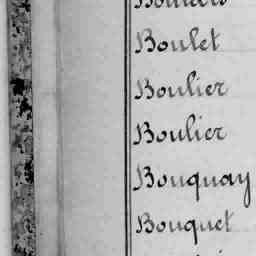 Boulet
Boulier
Boulier
Bouquay
Bouquet